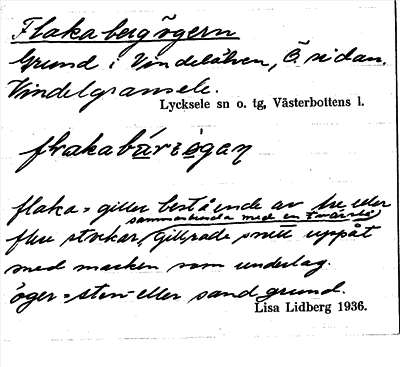 Flakabergögern
Grund i Vindelälven, Ö. sidan.
Vindelgransele.
Lycksele sn o. tg, Västerbottens l.
flakabärıögan
flaka = giller bestående av tre eller
sammanbundna med en tvärslå
flere stockar, gillrade snett uppåt
med marken som underlag.
öger = sten- eller sandgrund.
Lisa Lidberg 1936.